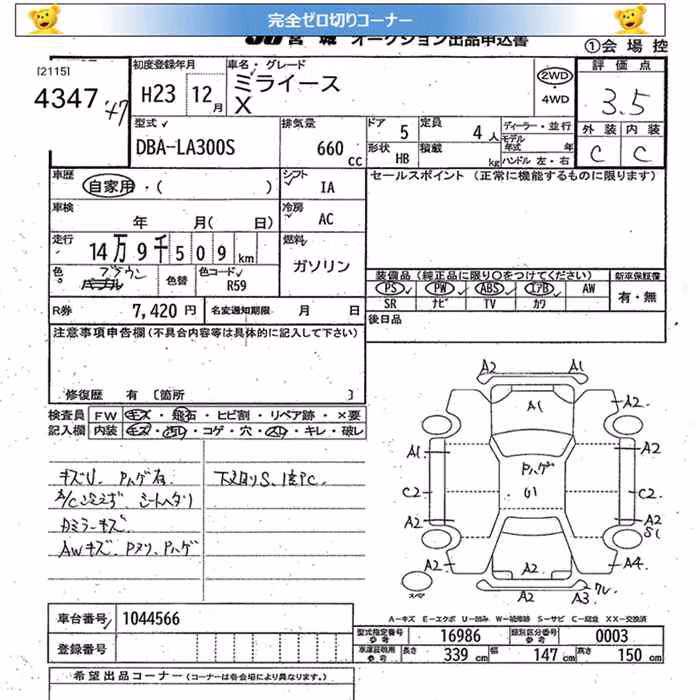 完全ゼロ切りコーナー
JU宮城 オークション出品申込書
①会場控
[2115]
4347
初度登録年月
H23 12月
車名・グレード
ミライース
X
2WD
4WD
評価点
3.5
外装 内装
C C
型式
DBA-LA300S
排気量
660 CC
ドア 5
定員 4人
形状 HB
積載 kg
ディーラー・並行
モデル年式 年
ハンドル 左・右
車歴
自家用・( )
シフト IA
セールスポイント (正常に機能するものに限ります)
車検
年 月( 日)
冷房 AC
走行
14万9千509km
燃料
ガソリン
色 パープル ブラウン
色替
色コード R59
装備品 (純正品に限り○をつけてください)
新車保証書
PS PW ABS エアB AW
SR ナビ TV カワ
有・無
R券 7,420円
名変通知期限 月 日
後日品
注意事項申告欄(不具合内容等は具体的に記入して下さい)
修復歴 有 [箇所 ]
検査員
記入欄
FW キズ・飛石・ヒビ割・リペア跡・×要
内装 キズ・汚れ・コゲ・穴・スレ・キレ・破レ
シートヘタリ
カミラーキズ
AWキズ、Pヌリ、Pハゲ
A2 A1
A2 A1 A2
A1 A2
Pハゲ
U1
C2 C2
A2 A2
S1
A2 A2 A4
A2 A3 ワレ
スペア
A-キズ E-エクボ U-凹み W-補修跡 S-サビ C-腐食 XX-交換済
車台番号 1044566
登録番号
型式指定番号 参考 16986
類別区分番号 参考 0003
車庫証明用 参考 長さ 339cm 幅 147cm 高さ 150cm
希望出品コーナー (コーナーは各会場により異なります。)